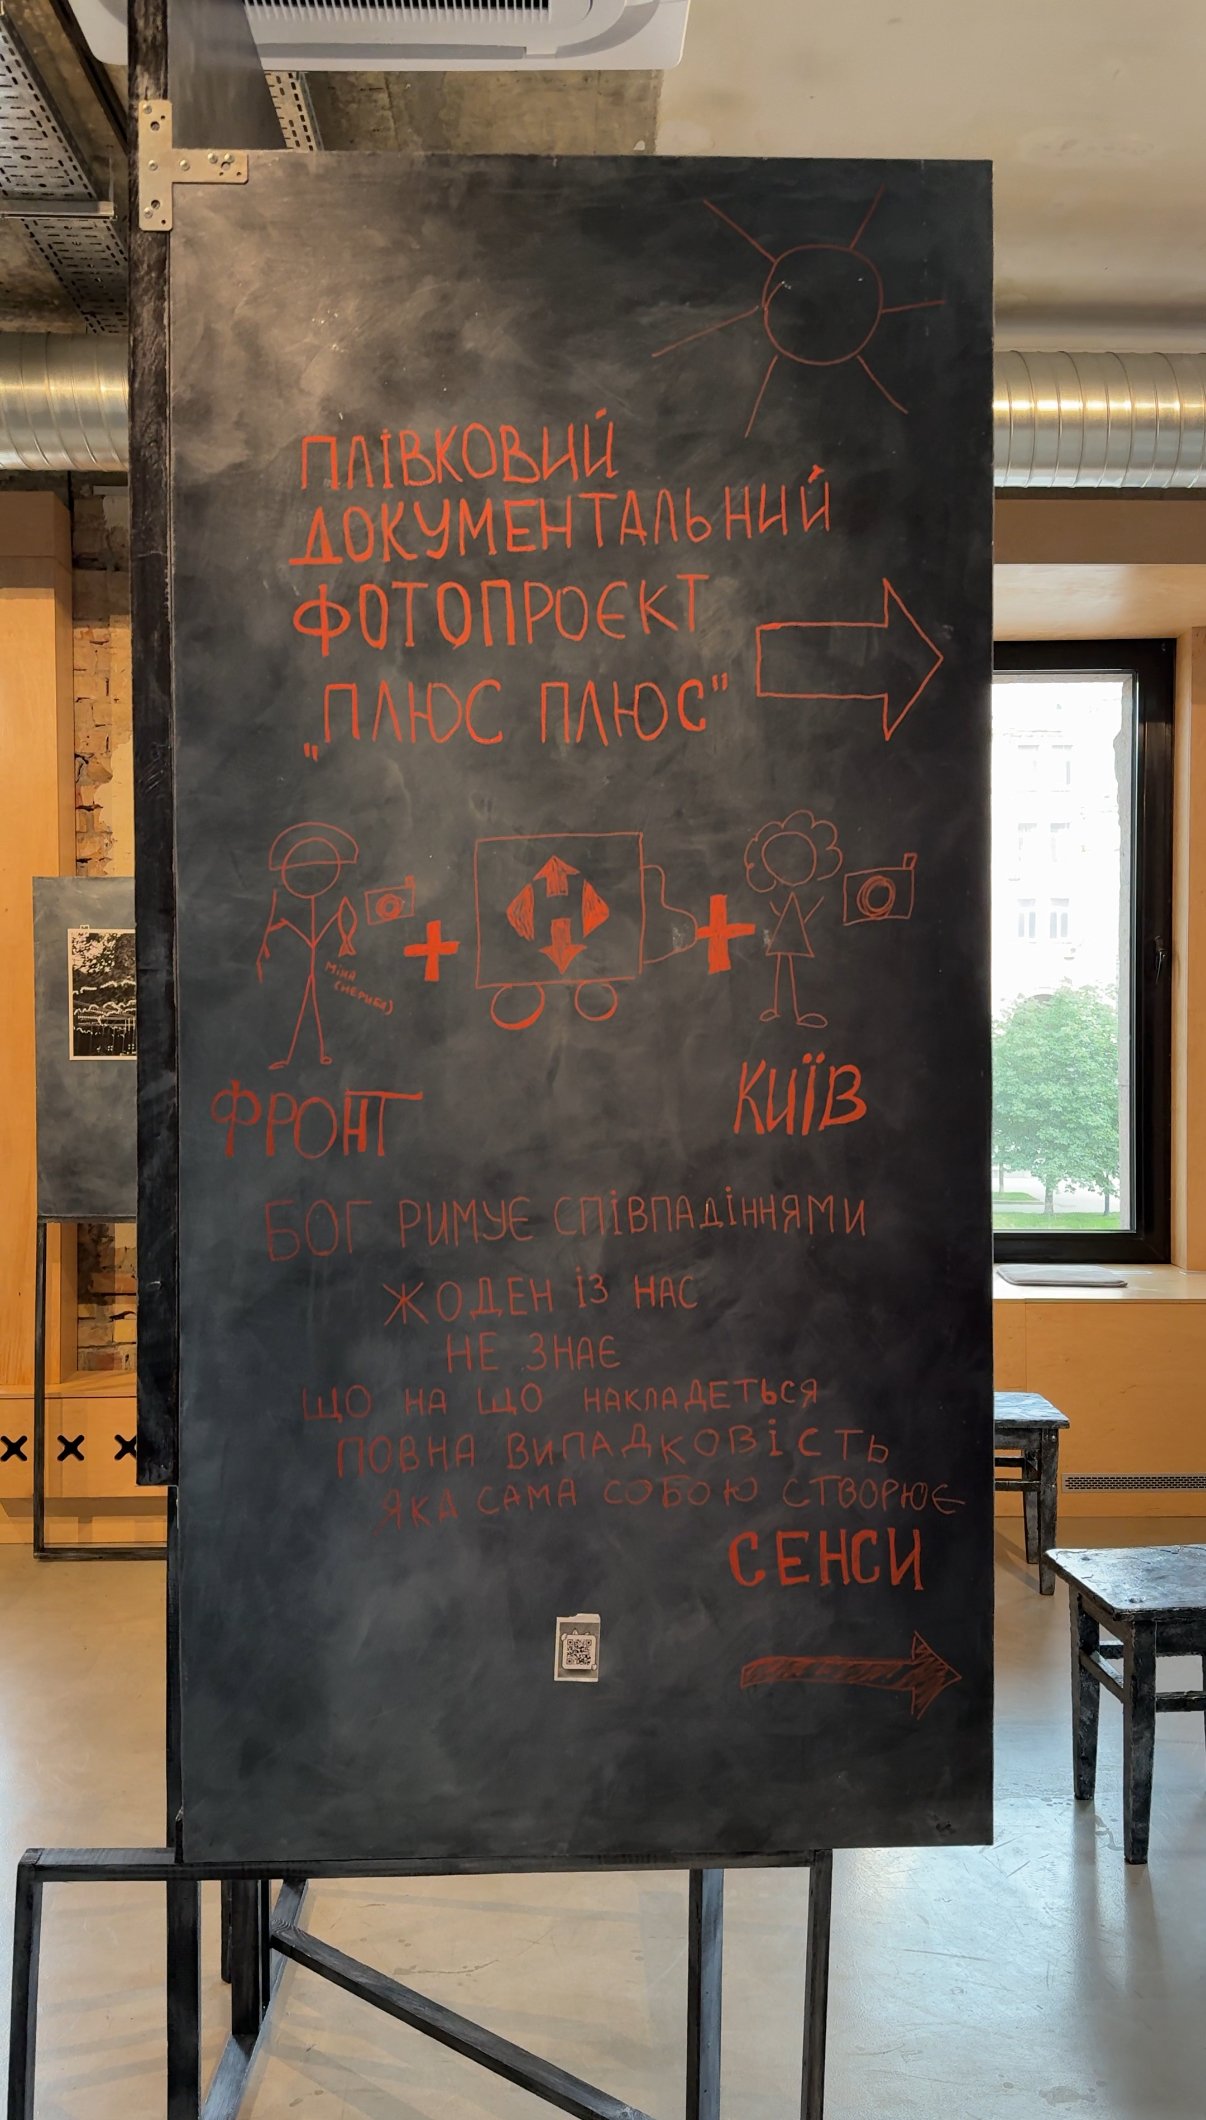 ПЛІВКОВИЙ
ДОКУМЕНТАЛЬНИЙ
ФОТОПРОЄКТ
„ПЛЮС ПЛЮС"
+
+
МІНА
(НЕ РИБА)
ФРОНТ
КИЇВ
БОГ РИМУЄ СПІВПАДІННЯМИ
ЖОДЕН ІЗ НАС
НЕ ЗНАЄ
ЩО НА ЩО НАКЛАДЕТЬСЯ
ПОВНА ВИПАДКОВІСТЬ
ЯКА САМА СОБОЮ СТВОРЮЄ
СЕНСИ